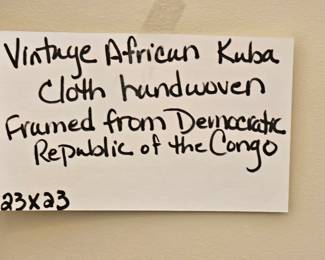 Vintage African Kuba
Cloth handwoven
Framed from Democratic
Republic of the Congo
23x23